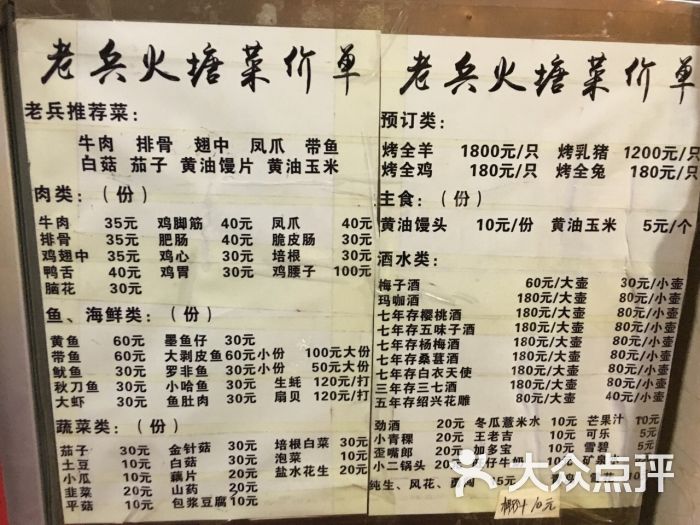 老兵火塘菜价单
老兵推荐菜：
牛肉 排骨 翅中 凤爪 带鱼
白菇 茄子 黄油馒片 黄油玉米
肉类：（份）
牛肉 35元 鸡脚筋 40元 凤爪 40元
排骨 35元 肥肠 40元 脆皮肠 30元
鸡翅中 35元 鸡心 30元 培根 30元
鸭舌 40元 鸡胃 30元 鸡腰子 100元
脑花 30元
鱼、海鲜类：（份）
黄鱼 60元 墨鱼仔 30元
带鱼 60元 大剥皮鱼 60元小份 100元大份
鱿鱼 30元 罗非鱼 30元小份 50元大份
秋刀鱼 30元 小哈鱼 30元 生蚝 120元/打
大虾 30元 鱼肚肉 30元 扇贝 120元/打
蔬菜类：（份）
茄子 30元 金针菇 30元 培根白菜 30元
土豆 10元 白菇 30元 泡菜 10元
小瓜 10元 藕片 20元 盐水花生 20元
韭菜 20元 山药 20元
平菇 10元 包浆豆腐 10元
老兵火塘菜价单
预订类：
烤全羊 1800元/只 烤乳猪 1200元/只
烤全鸡 180元/只 烤全兔 180元/只
主食：（份）
黄油馒头 10元/份 黄油玉米 5元/个
酒水类：
梅子酒 60元/大壶 30元/小壶
玛咖酒 180元/大壶 80元/小壶
七年存樱桃酒 180元/大壶 80元/小壶
七年存五味子酒 180元/大壶 80元/小壶
七年存杨梅酒 180元/大壶 80元/小壶
七年存桑葚酒 180元/大壶 80元/小壶
七年存白衣天使 180元/大壶 80元/小壶
三年存三七酒 180元/大壶 80元/小壶
五年存绍兴花雕 80元/大壶 40元/小壶
劲酒 20元 冬瓜薏米水 10元 芒果汁 10元
小青稞 20元 王老吉 10元 可乐 5元
歪嘴郎 20元 加多宝 10元 雪碧 5元
小二锅头 20元 仔牛奶 矿
纯生、风花、 5元
椰汁 10元
大众点评